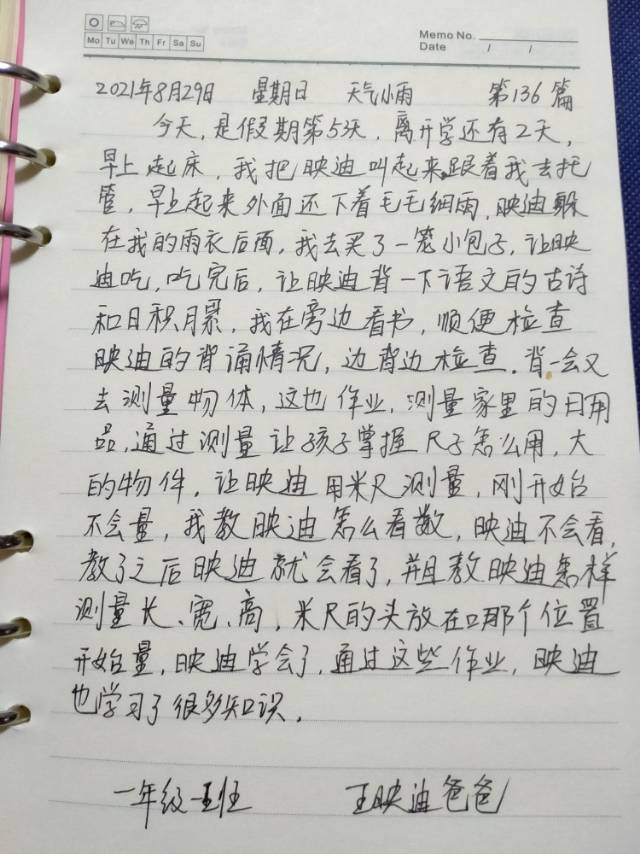 Mo Tu We Th Fr Sa Su
Memo No.
Date / /
2021年8月29日 星期日 天气小雨 第136篇
今天,是假期第5天,离开学还有2天,
早上起床,我把映迪叫起来跟着我去托
管,早上起来外面还下着毛毛细雨,映迪躲
在我的雨衣后面,我去买了一笼小包子,让映
迪吃,吃完后,让映迪背一下语文的古诗
和日积月累,我在旁边看书,顺便检查
映迪的背诵情况,边背边检查.背一会又
去测量物体,这也作业,测量家里的日用
品,通过测量让孩子掌握尺子怎么用,大
的物件,让映迪用米尺测量,刚开始
不会量,我教映迪怎么看数,映迪不会看,
教了之后映迪就会看了,并且教映迪怎样
测量长、宽、高,米尺的头放在哪个位置
开始量,映迪学会了,通过这些作业,映迪
也学习了很多知识。
一年级一班 王映迪爸爸